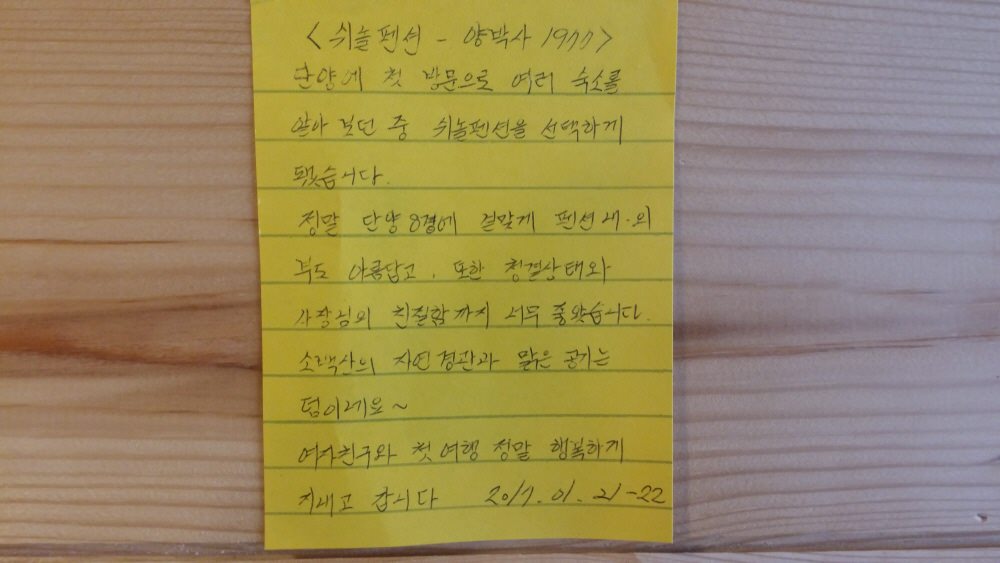 <쉬놀펜션 - 양박사 1977>
단양에 첫 방문으로 여러 숙소를
알아 보던 중 쉬놀펜션을 선택하게
됐습니다.
정말 단양8경에 걸맞게 펜션 내·외
부도 아름답고, 또한 청결상태와
사장님의 친절함까지 너무 좋았습니다.
소백산의 자연경관과 맑은 공기는
덤이네요~
여자친구와 첫 여행 정말 행복하게
지내고 갑니다 2017.01.21-22